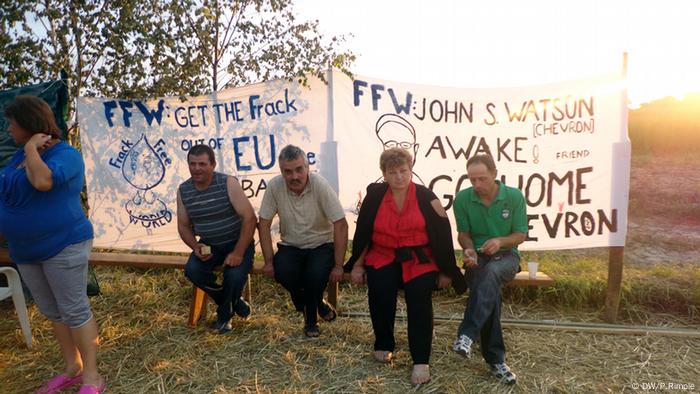 FFW: GET THE Frack
OUT OF EU
BA
Frack Free
WORLD
FFW: JOHN S. WATSON
[CHEVRON]
AWAKE!
FRIEND
GO HOME
CHEVRON
© DW/P.Rimple